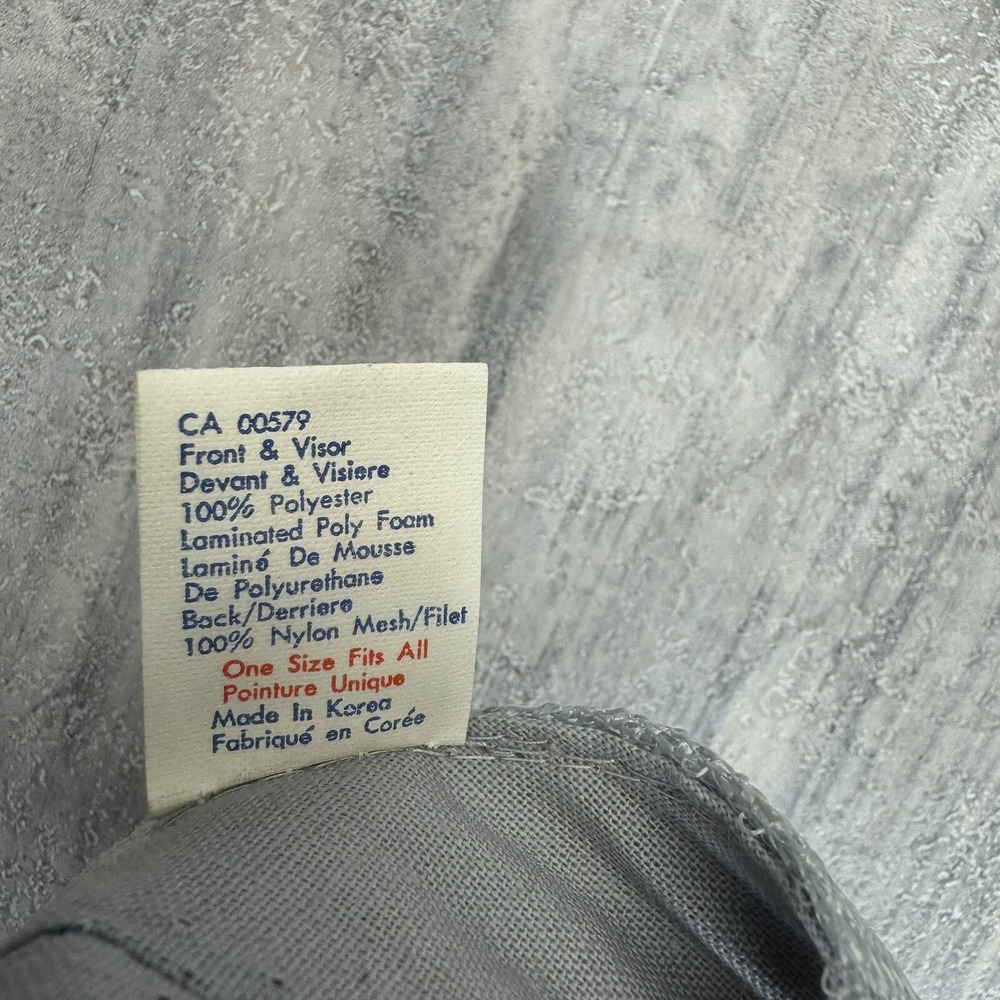 CA 00579
Front & Visor
Devant & Visiere
100% Polyester
Laminated Poly Foam
Laminé De Mousse
De Polyurethane
Back/Derriere
100% Nylon Mesh/Filet
One Size Fits All
Pointure Unique
Made In Korea
Fabriqué en Corée